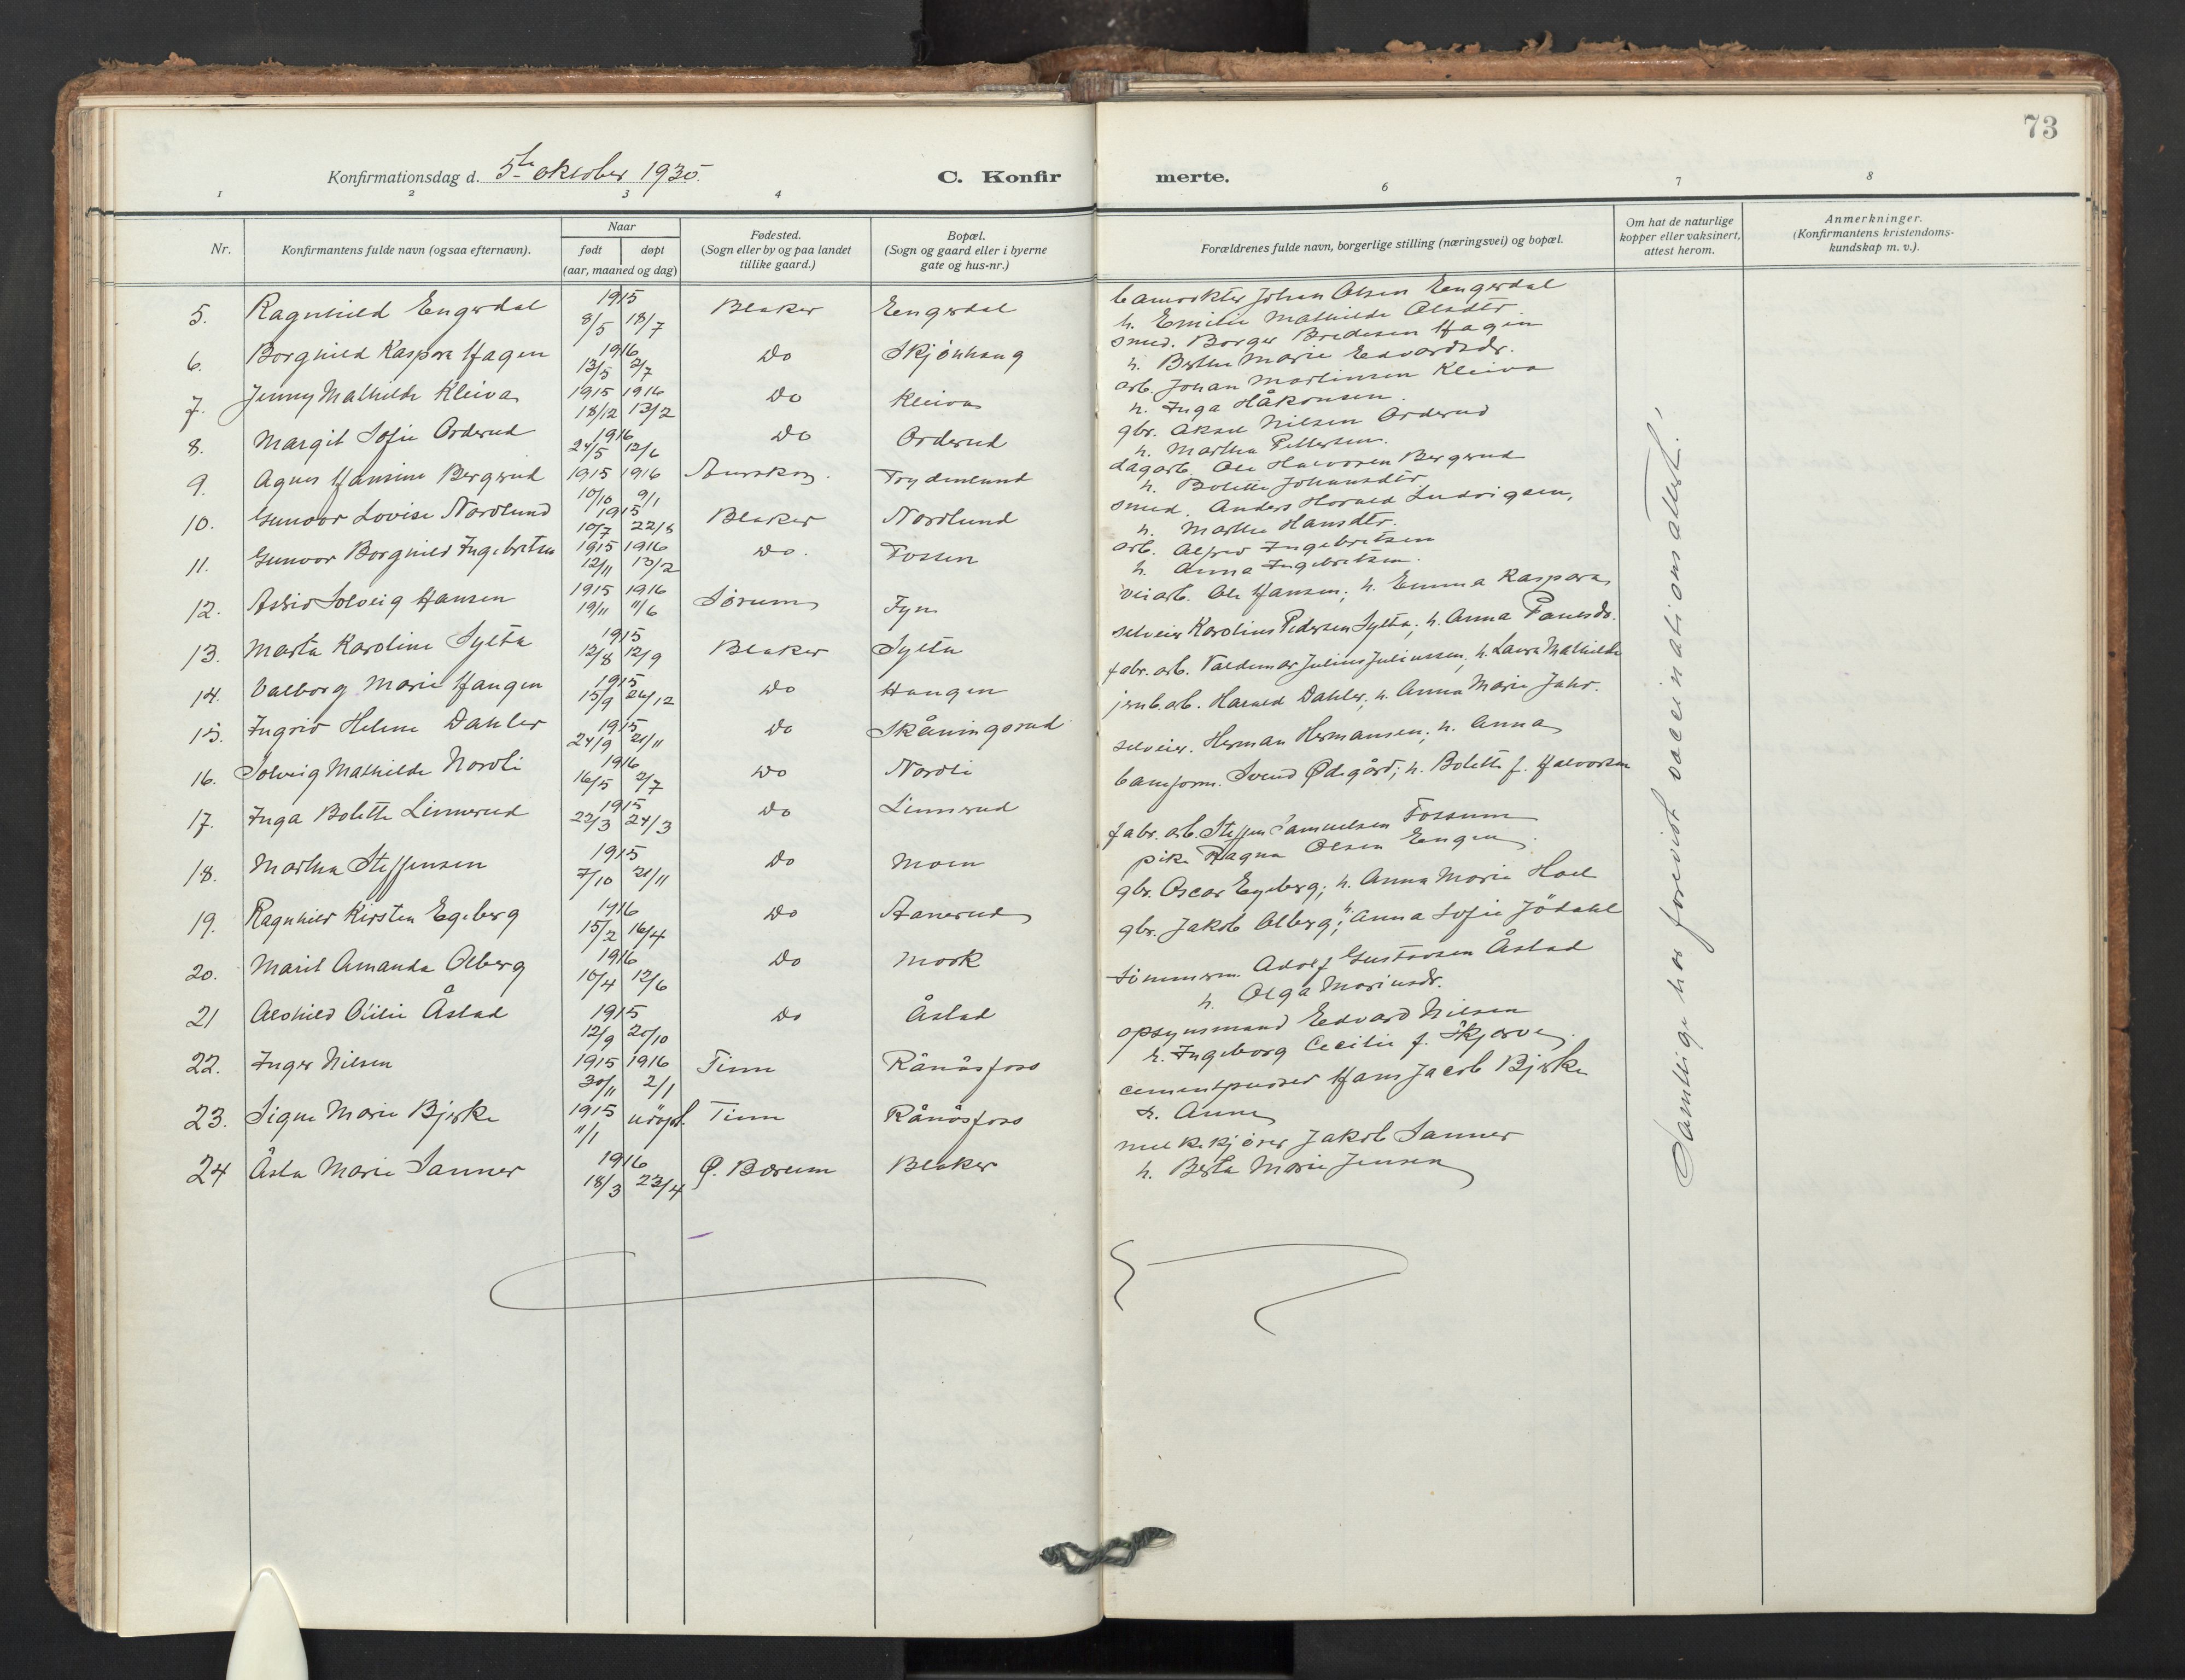 73
Konfirmationsdag d. 5te oktober 1930.
C. Konfirmerte.
1 2 3 4 6 7 8
Nr. Konfirmantens fulde navn (ogsaa efternavn). Naar født døpt (aar, maaned og dag) Fødested. (Sogn eller by og paa landet tillike gaard.) Bopæl. (Sogn og gaard eller i byerne gate og hus-nr.) Forældrenes fulde navn, borgerlige stilling (næringsvei) og bopæl. Om hat de naturlige kopper eller vaksinert, attest herom. Anmerkninger. (Konfirmantens kristendoms-kundskap m. v.).
5. Ragnhild Engerdal 1915 8/5 18/7 Blaker Engerdal Johan Olsen Engerdal
h. Emilie Mathilde Olsdtr.
6. Borghild Kaspara Hagen 1916 13/5 2/7 Do Skjønhaug smed. Borger Bredesen Hagen
h. Berthe Marie Edvardsdr.
7. Jenny Mathilde Kleiva 1915 18/12 1916 13/2 Do Kleiva arb. Johan Martinsen Kleiva
h. Inga Håkonsen.
8. Margit Sofie Orderud 1916 24/5 12/6 Do Orderud gbr. Aksel Nilsen Orderud
h. Martha Pettersen.
9. Agnes Hansine Bergerud 1915 10/10 1916 9/1 Aurskog. Frydenlund dagarb. Ole Halvorsen Bergerud
h. Bolette Johansdtr.
10. Gunvor Lovise Nordlund 1915 10/7 22/8 Blaker Nordlund smed. Anders Harald Ludvigsen,
h. Marthe Hansdtr.
11. Gunvor Borghild Ingebretsen 1915 12/11 1916 13/2 Do. Fossen arb. Alfred Ingebretsen
h. Anna Ingebretsen.
12. Astrid Solveig Hansen 1915 19/11 1916 11/6 Sørum Fyn veiarb. Ole Hansen; h. Emma Kaspara
13. Marta Karoline Sylta 1915 12/8 12/9 Blaker Sylta selveier Karolius Pedersen Sylta; h. Anna Paulsdr.
14. Valborg Marie Haugen 1915 15/9 26/12 Do Haugen fabr. arb. Valdemar Julius Juliussen, h. Laura Mathilde
15. Ingrid Helene Dahler 1915 24/9 21/11 Do Skåningsrud jernb. arb. Harald Dahler; h. Anna Marie Jahr.
16. Solveig Mathilde Nordli 1916 16/5 2/7 Do Nordli selveier. Herman Hermansen; h. Anna
17. Inga Bolette Linnerud 1915 22/3 24/3 Do Linnerud baneform. Svend Ødegård; h. Bolette f. Halvorsen
18. Martha Steffensen 1915 7/10 21/11 Do Moen fabr. arb. Steffen Samuelsen Fossum
pike Ragna Olsen Engen
19. Ragnhild Kirsten Egeberg 1916 15/2 16/4 Do Aanerud gbr. Oscar Egeberg; h. Anna Marie Hoel
20. Marit Amanda Olberg 1916 10/4 12/6 Do Mork gbr. Jakob Olberg; h. Anna Sofie Jödahl
21 Alshild Otilie Åstad 1915 12/9 20/10 Do Åstad tömmerm. Adolf Gustavsen Åstad
h. Olga Mariusdr.
22. Inger Nilsen 1915 30/11 1916 2/1 Tinn Rånåsfoss opsynsmand Edvard Nilsen
h. Ingeborg Cecilie f. Skjerve.
23. Signe Marie Bjerke 1915 11/1 udöpt. Tinn Rånåsfoss cementpusser Hans Jacob Bjerke
h. Anna
24 Åsta Marie Sanner 1916 18/3 23/4 Ø. Bærum Blaker melkekjører Jakob Sanner
h. Berta Marie Jensen
Samtlige har forevist vaccinationsattest.